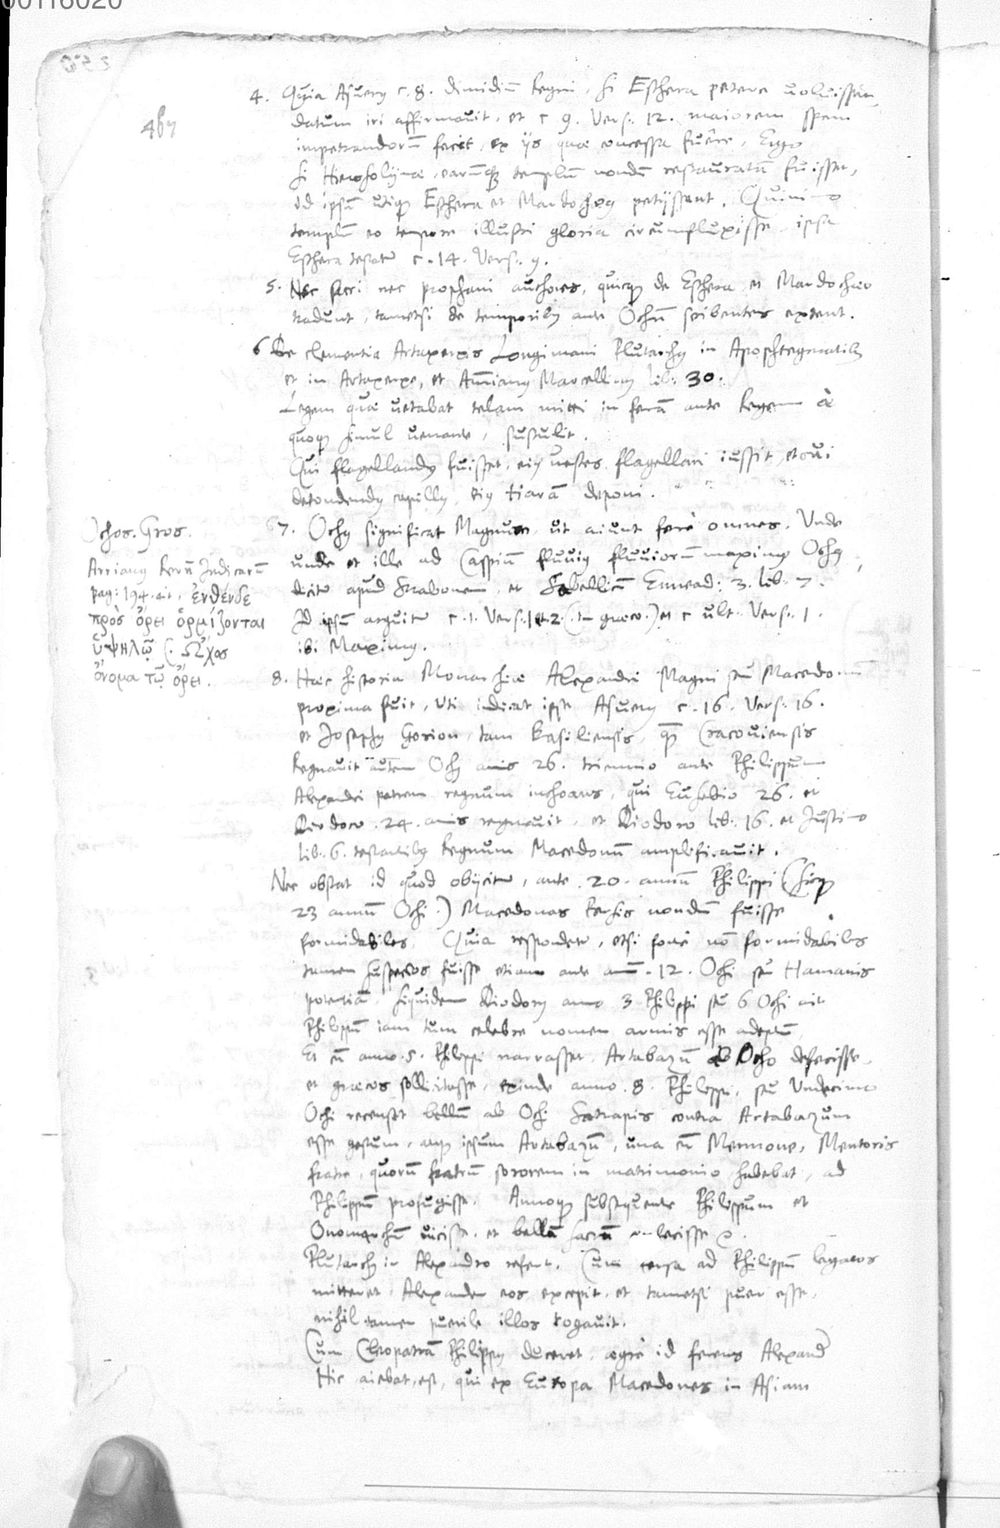 00116020
467
4. Quia Asuerus c. 8. dimidiũ Regni, si Esthera petere uoluisset,
datum iri affirmauit, et c 9. Vers. 12. maiorem spem
impetrandorũ fecit, ex ijs quae concessa fuêre, Ergo
si Hierosolymae, earũque templũ nondũ restauratũ fuisset,
id ipsũ utique Esthera et Mardochaeus petijssent. Quinimo
templũ eo tempore illustri gloria circumfluxisse ipsa
Esthera testatur c. 14. Vers. 9.
5. Nec sacri nec prophani authores, quicquam de Esthera et Mardochaeo
tradunt, tametsi de temporibus ante Ochũ scribentes extent.
6 De clementia Artaxerxis Longimani Plutarchus in Apophtegmatibus
et in Artaxerxe, et Am̃ianus Marcellinus lib. 30.
Legem quae uetabat telum mitti in ferã ante Regem
quoque simul uenante, sustulit.
Qui flagellandus fuisset, eius uestes flagellari iussit, et cui
detondendus capillus, eius tiarã deponi.
Ochos. Gros.
Arrianus Rerũ Indicarũ
pag: 194. ait, ἐνθένδε
πρὸς ὄρει ὁρμίζονται
ὑψηλῷ (. Ὦχος
ὄνομα τῷ ὄρει.
7. Ochus significat Magnum, ut aiunt ferè omnes. Unde
unde et ille ad Caspiũ fluuius fluuiorũ maximus Ochus
dicitur apud Strabonem, et Sabellicũ Ennead: 3. lib. 7.
Id ipsum arguitur c. 1. Vers. 1 et 2 (in graeco.) et c ult. Vers. 1.
ibi Maximus.
8. Haec historia Monarchiae Alexandri Magni seu Macedonum
proxima fuit, uti indicat ipse Asuerus c. 16. Vers. 16.
et Josephus Gorion, tam Basiliensis, quam Cracouiensis
Regnauit autem Ochus annis 26. triennio ante Philippum
Alexandri patrem regnum inchoans, qui Eusebio 26. et
Diodoro 24. annis regnauit, et Diodoro lib. 16. et Justino
lib. 6. testantibus Regnum Macedonũ amplificauit.
Nec obstat id quod obijcitur, ante 20. annũ Philippi (sive
23 annũ Ochi.) Macedonas Persis nondũ fuisse
formidabiles. Quia respondetur, etsi forte nõ formidabiles
tamen suspectos fuisse etiam ante anñ. 12. Ochi seu Hamanis
potentiã, siquidem Diodorus anno 3 Philippi seu 6 Ochi ait
Philippũ iam tum celebre nomen armis esse adeptũ,
Et cũ anno. 5. Philippi narrasset, Artabazũ ab Ocho defecisse,
et graecos sollicitasse, exinde anno. 8. Philippi, seu Undecimo
Ochi recenset bellũ ab Ochi Satrapis contra Artabazum
esse gestum, atque ipsum Artabazũ, una cũ Memnone, Mentoris
fratre, quorũ fratrũ sororem in matrimonio habebat, ad
Philippũ profugisse. Annoque subsequente Philippum et
Onomarchũ uicisse, et bellũ sacrũ
Plutarchus in Alexandro refert. Cum Persa ad Philippũ legatos
mitteret, Alexander eos excepit, et tametsi puer esset,
nihil tamen puerile illos rogauit.
Cum Cleopatrã Philippus duceret, aegrè id ferens Alexander
Hic aiebat, est, qui ex Europa Macedones in Asiam